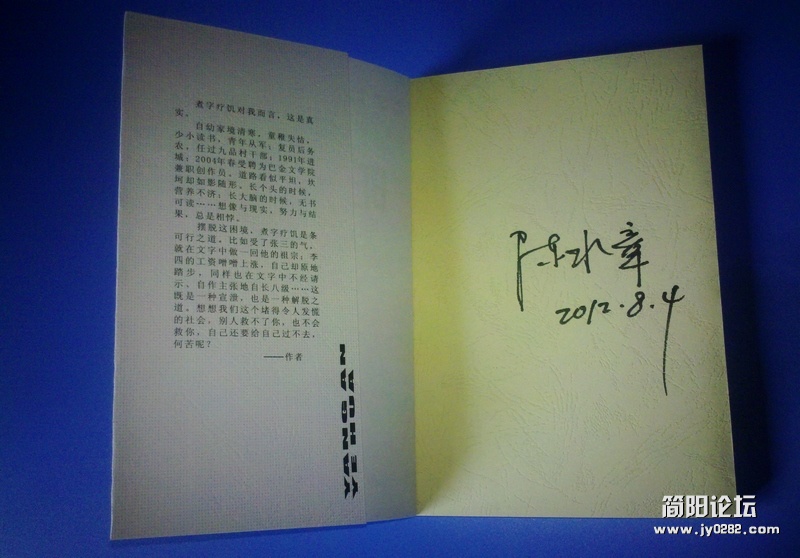 煮字疗饥对我而言，这是真
实。
自幼家境清寒，童稚失恃，
少小读书，青年从军；复员后务
农，任过九品村干部；1991年进
城；2004年春受聘为巴金文学院
兼职创作员。道路看似平坦，坎
坷却如影随形。长个头的时候，
营养不济；长大脑的时候，无书
可读……想像与现实，努力与结
果，总是相悖。
摆脱这困境，煮字疗饥是条
可行之道。比如受了张三的气，
就在文字中做一回他的祖宗；李
四的工资噌噌上涨，自己却原地
踏步，同样也在文字中不经请
示，自作主张地自长八级……这
既是一种宣泄，也是一种解脱之
道。想想我们这个堵得令人发慌
的社会，别人救不了你，也不会
救你，自己还要给自己过不去，
何苦呢？
——作者
YE HUA
YANG AN
陈水章
2012.8.4
简阳论坛
www.jy0282.com